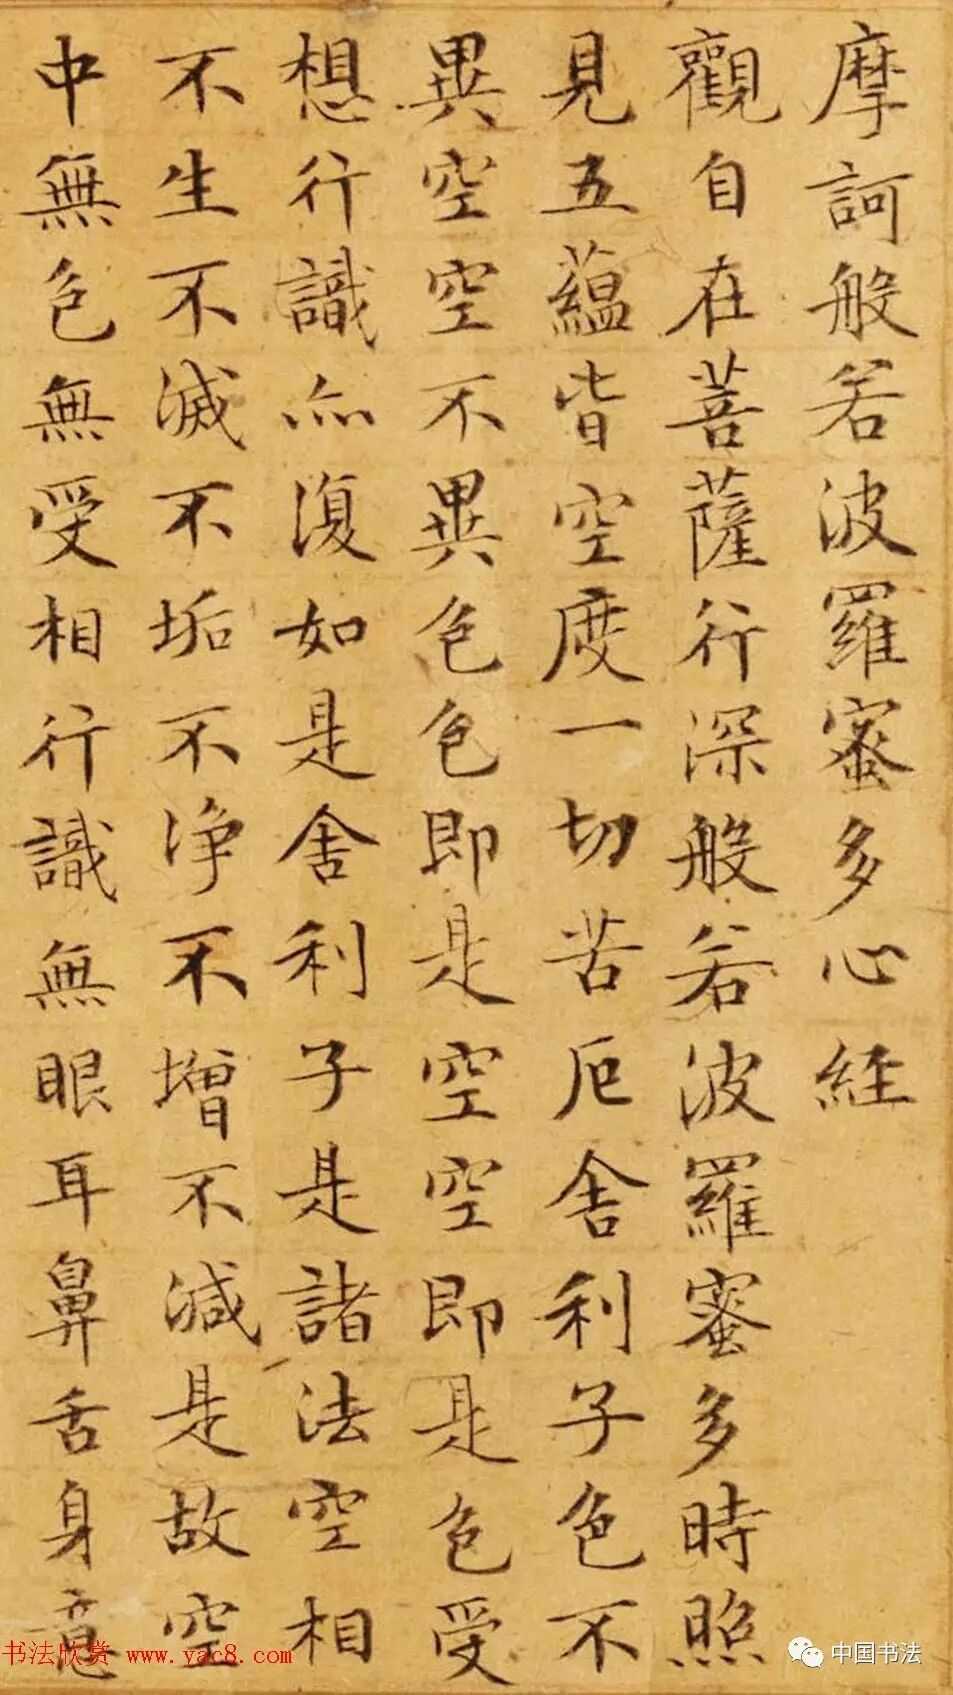 摩訶般若波羅蜜多心経
觀自在菩薩行深般若波羅蜜多時照
見五蘊皆空度一切苦厄舍利子色不
異空空不異色色即是空空即是色受
想行識亦復如是舍利子是諸法空相
不生不滅不垢不净不增不減是故空
中無色無受相行識無眼耳鼻舌身意
书法欣赏 www.yac8.com
中国书法